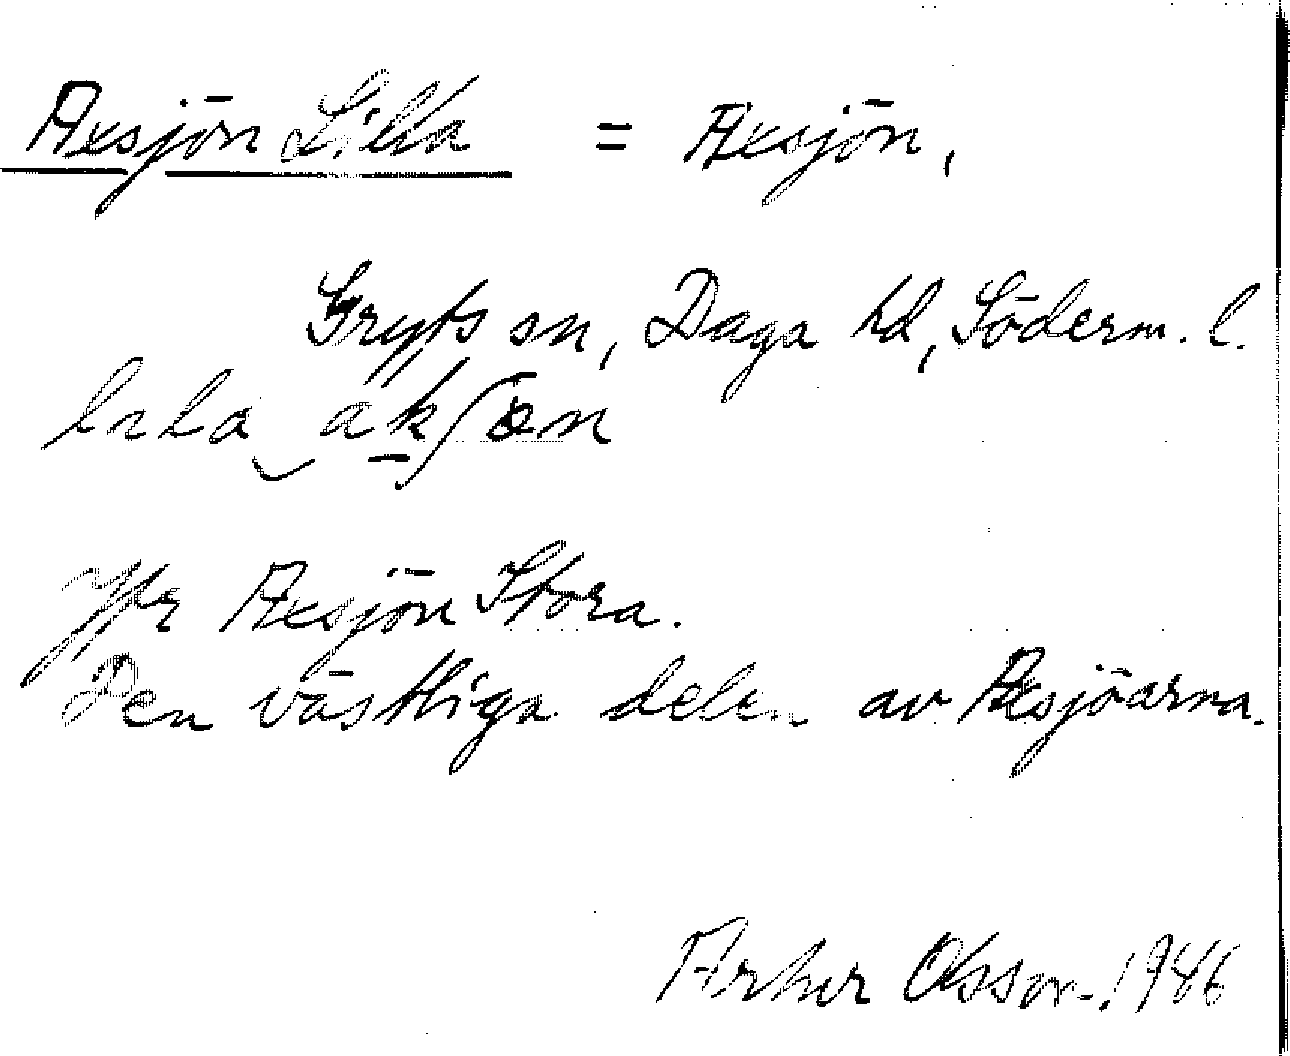 Axsjön Lilla = Axsjön,
Gryts sn, Daga hd, Söderm. l.
Jfr Axsjön Stora.
Den västliga delen av Axsjöarna.
Arthur Olsson. 1946